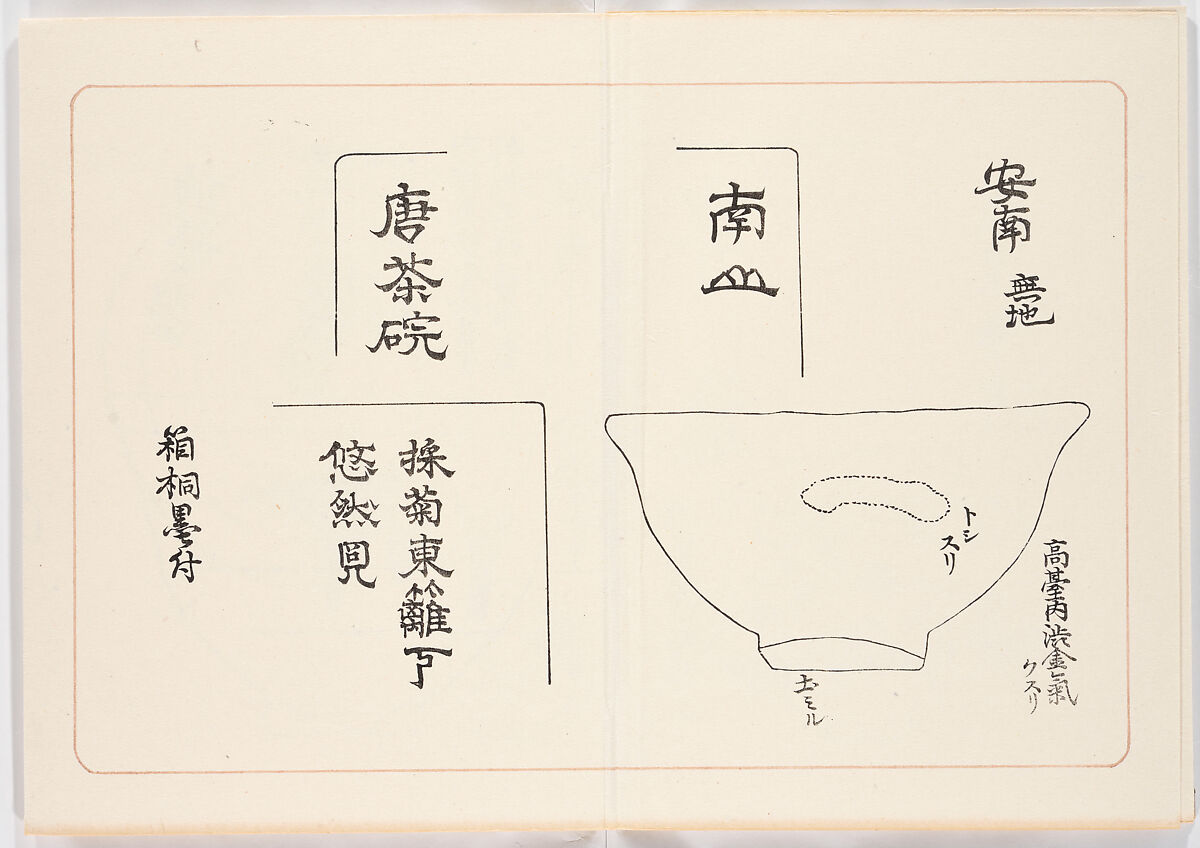 安南 無地
南山
トシ
スリ
高䑓内渋金氣
クスリ
土ミル
唐茶碗
採菊東籬下
悠然見
箱桐墨付